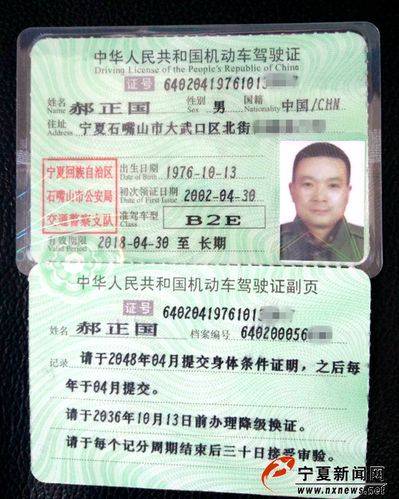 中华人民共和国机动车驾驶证
Driving License of the People's Republic of China
证号 64020419761013
姓名 Name 郝正国 性别 Sex 男 国籍 Nationality 中国/CHN
住址 Address 宁夏石嘴山市大武口区北街
宁夏回族自治区
石嘴山市公安局
交通警察支队
出生日期 Date of Birth 1976-10-13
初次领证日期 Date of First Issue 2002-04-30
准驾车型 Class B2E
有效期限 Valid Period 2018-04-30 至 长期
中华人民共和国机动车驾驶证副页
证号 64020419761013
姓名 Name 郝正国 档案编号 640200056
记录 请于2048年04月提交身体条件证明,之后每
年于04月提交。
请于2036年10月13日前办理降级换证。
请于每个记分周期结束后三十日接受审验。
宁夏新闻网
www.nxnews.net